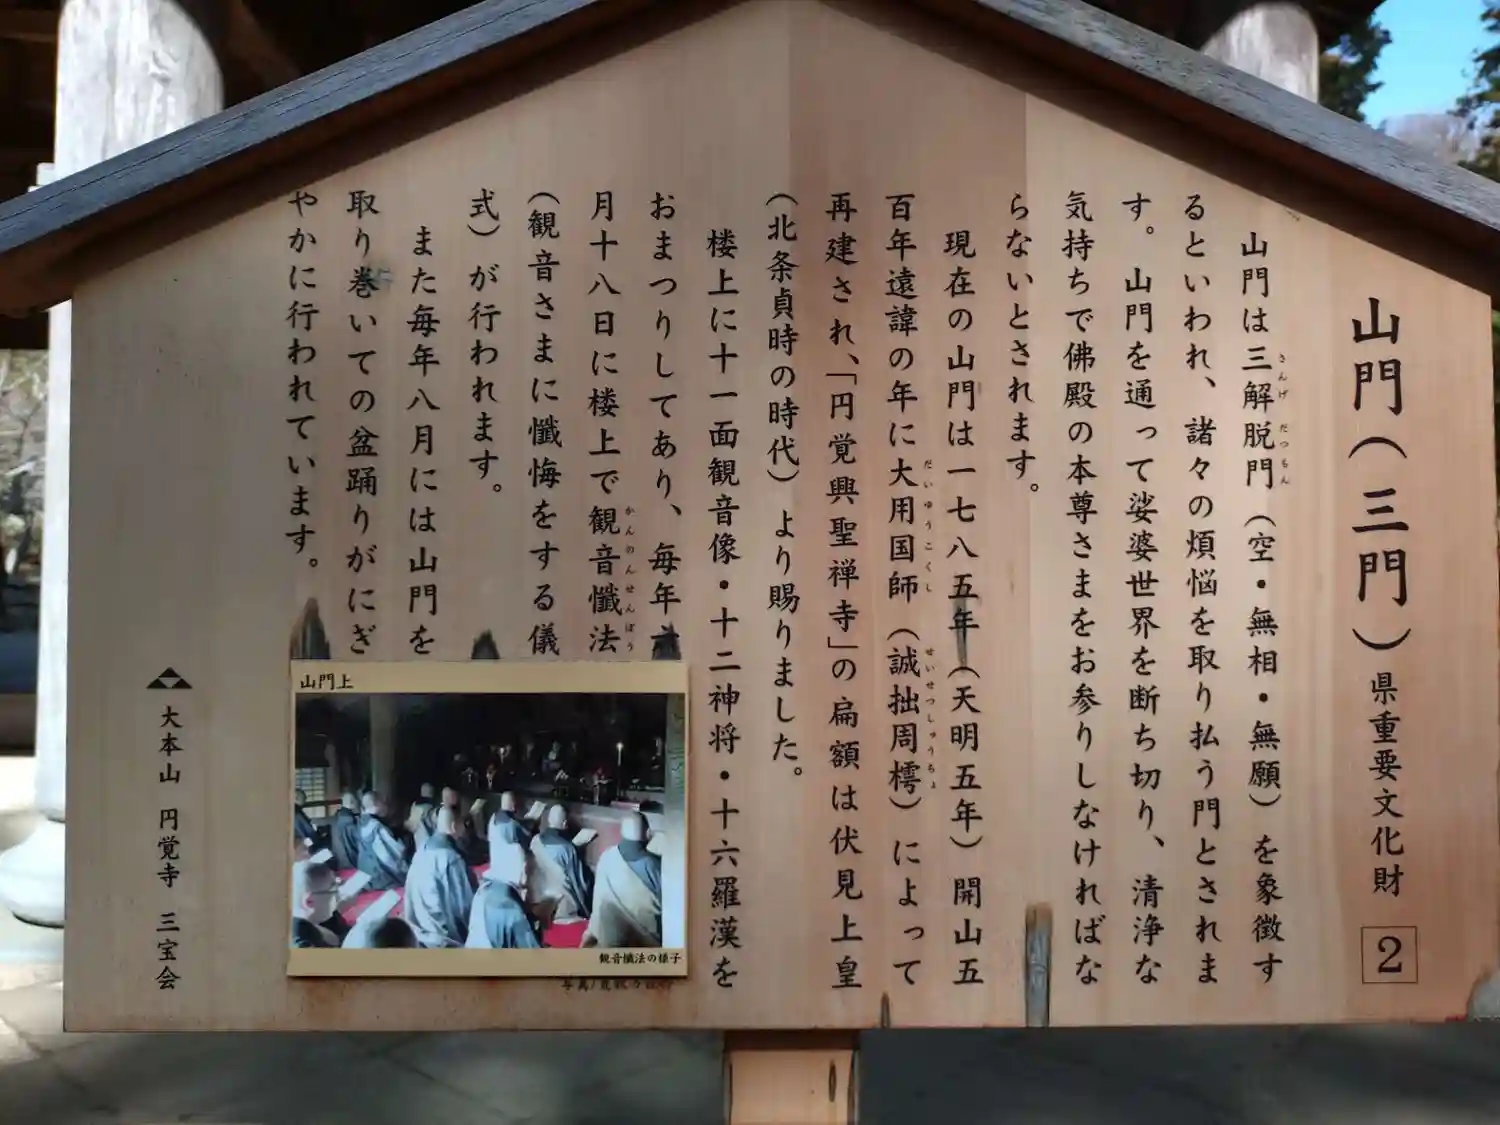 山門(三門) 県重要文化財 2
山門は三解脱門(空・無相・無願)を象徴す
さんげだつもん
るといわれ、諸々の煩悩を取り払う門とされま
す。山門を通って娑婆世界を断ち切り、清浄な
気持ちで佛殿の本尊さまをお参りしなければな
らないとされます。
現在の山門は一七八五年(天明五年)開山五
百年遠諱の年に大用国師(誠拙周樗)によって
だいゆうこくし せいせつしゅうちょ
再建され、「円覚興聖禅寺」の扁額は伏見上皇
(北条貞時の時代)より賜りました。
楼上に十一面観音像・十二神将・十六羅漢を
おまつりしてあり、毎年六
月十八日に楼上で観音懺法
かんのんせんぼう
(観音さまに懺悔をする儀
式)が行われます。
また毎年八月には山門を
取り巻いての盆踊りがにぎ
やかに行われています。
山門上
観音懺法の様子
大本山 円覚寺 三宝会